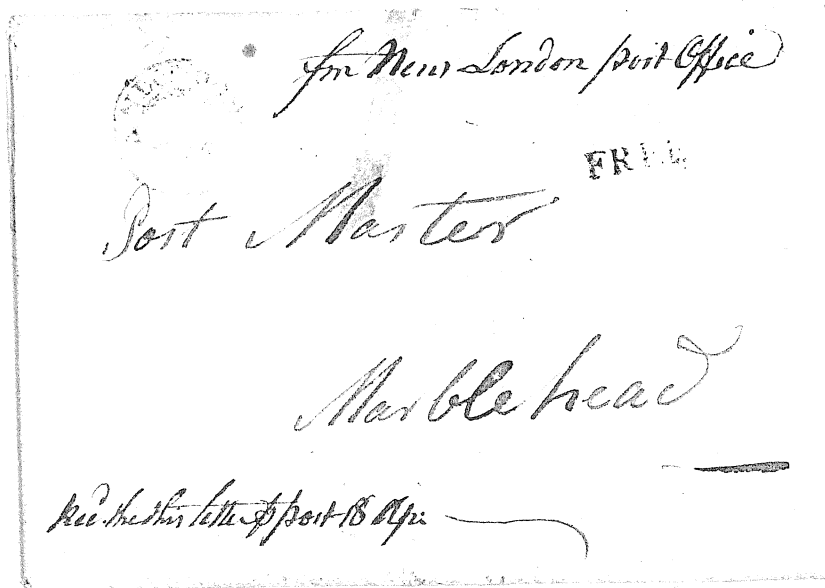 fm New London post Office
FREE
Post Master
Marblehead
Recd. the this letter p post 18 Apr.